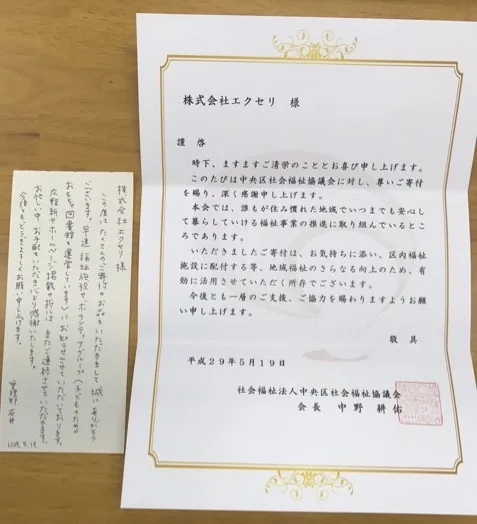 株式会社エクセリ 様
謹 啓
時下、ますますご清栄のこととお喜び申し上げます。
このたびは中央区社会福祉協議会に対し、尊いご寄付
を賜り、深く感謝申し上げます。
本会では、誰もが住み慣れた地域でいつまでも安心し
て暮らしていける福祉事業の推進に取り組んでいるとこ
ろであります。
いただきましたご寄付は、お気持ちに添い、区内福祉
施設に配付する等、地域福祉のさらなる向上のため、有
効に活用させていただく所存でございます。
今後とも一層のご支援、ご協力を賜わりますようお願
い申し上げます。
敬 具
平成29年5月19日
社会福祉法人中央区社会福祉協議会
会長 中野耕佑
株式会社 エクセリ 様
この度はたくさんのご寄付のお品をいただきまして 誠に ありがとう
ございます。早速 福祉施設や ボランティアグループ(子どものための
おもちゃ図書館を運営しています)に お知らせさせていただいております。
広報紙や ホームページ掲載の折には またご連絡させていただきます。
お忙しい中 お手配をいただき 心より感謝いたします。
今後とも どうぞよろしくお願い申し上げます。
管理部 石井
H29.5.19